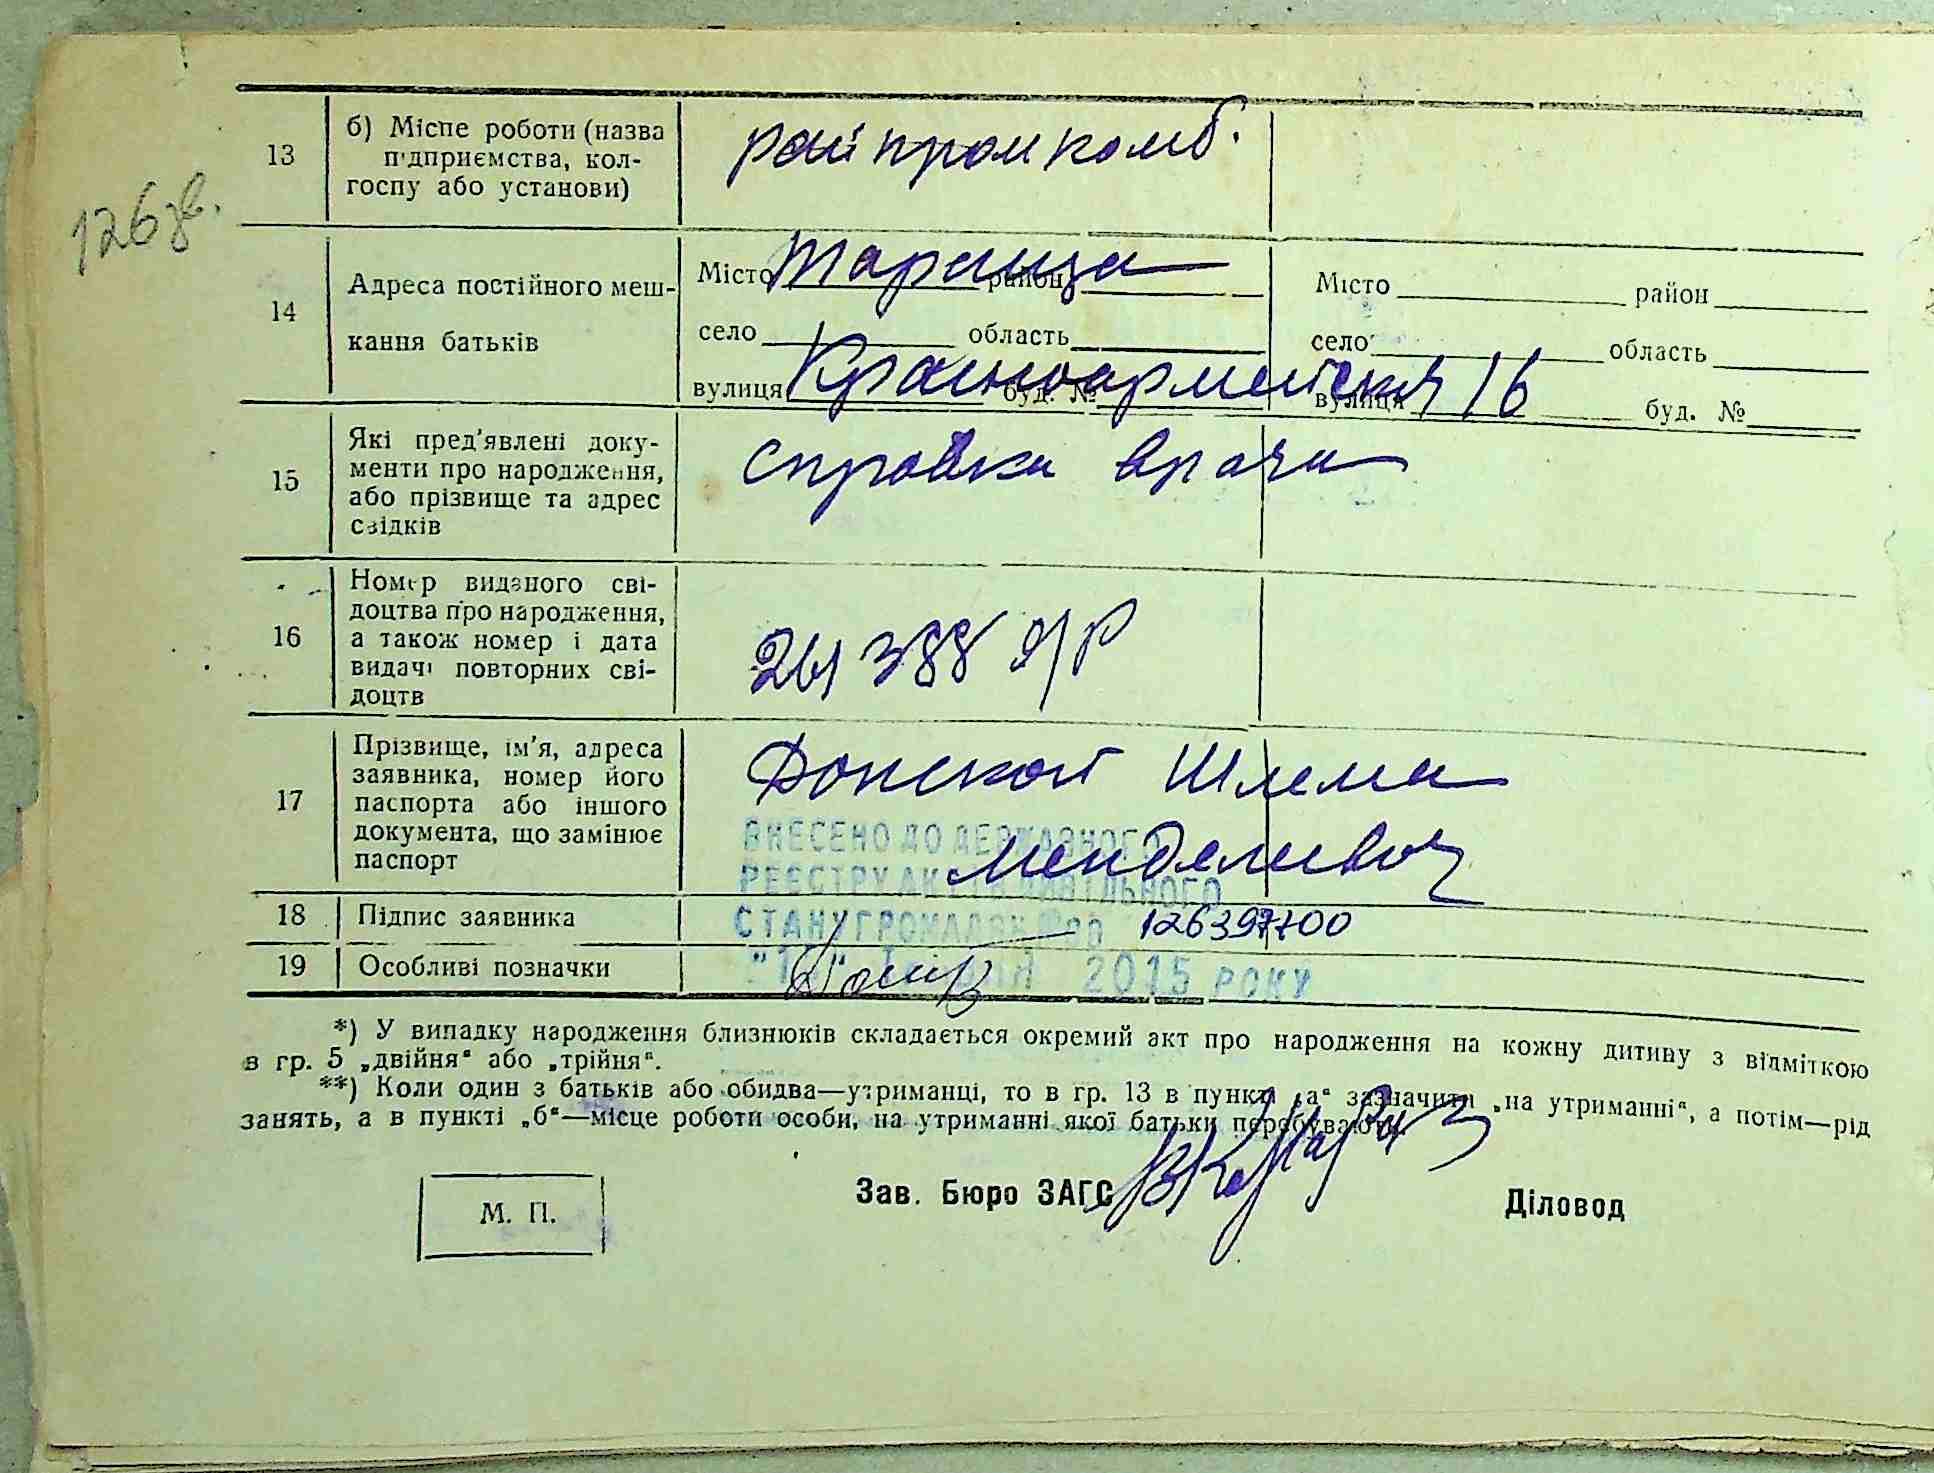 126зв.
13
б) Місце роботи (назва
підприємства, кол-
госпу або установи)
райпромкомб.
14
Адреса постійного меш-
кання батьків
Місто Тараща район
село область
вулиця Красноармейская 16 буд. №
Місто район
село область
вулиця буд. №
15
Які пред'явлені доку-
менти про народження,
або прізвище та адрес
свідків
справка врача
16
Номер виданого сві-
доцтва про народження,
а також номер і дата
видачі повторних сві-
доцтв
261388
17
Прізвище, ім'я, адреса
заявника, номер його
паспорта або іншого
документа, що замінює
паспорт
Донской Шлема
Менделевич
ВНЕСЕНО ДО ДЕРЖАВНОГО
РЕЄСТРУ АКТІВ ЦИВІЛЬНОГО
СТАНУ ГРОМАДЯН
2015 РОКУ
18
Підпис заявника
126397700
19
Особливі позначки
*) У випадку народження близнюків складається окремий акт про народження на кожну дитину з відміткою
в гр. 5 „двійня“ або „трійня“.
**) Коли один з батьків або обидва—утриманці, то в гр. 13 в пункті „а“ зазначити „на утриманні“, а потім—рід
занять, а в пункті „б“—місце роботи особи, на утриманні якої батьки перебувають.
М. П.
Зав. Бюро ЗАГС
Діловод